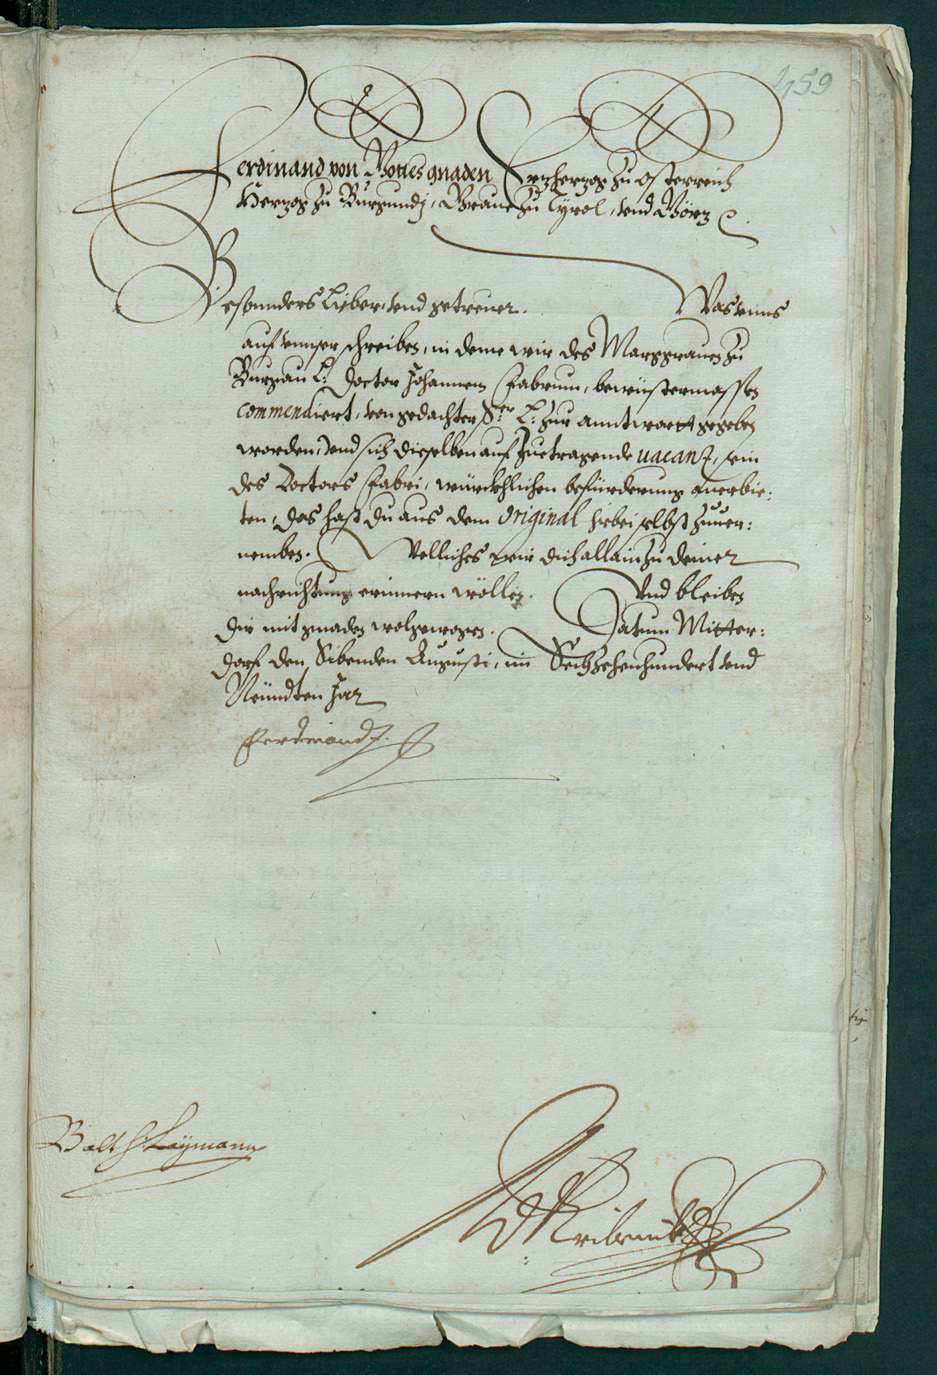 459
Ferdinand von Gottes gnaden Ertzhertzog zu Össterreich
Hertzog zu Burgundj, Graue zu Tyrol, vnd Görtz etc.
Besonnders Lieber, vnd getreuer. Was vnns
auf vnnser schreiben, in deme wir des Marggrauen zu
Burgau L: Doctor Johannem Fabrum, bewüstermassen
commendiert, von gedachter Sr: L: zur anntwortt gegeben
worden, vnd sich dieselben auf zuetragende uacanz, sein
des Doctors Fabri, würckhlichen befürderung anerbie:
ten, Das hast du aus dem Original hiebei selbst zuuer:
nemben. Welliches wir dich allain zu deiner
nachrichtung erinnern wöllen. Vnd bleiben
dir mit gnaden wolgewogen. Datum Mitter:
dorf den Sibenden Augusti, im Sechzehenhundert vnd
Neündten Jar
Ferdinand
Balth: Laÿmann